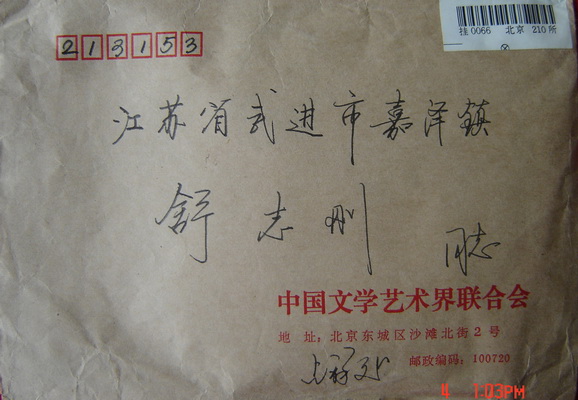 挂0066 北京 210所
213153
江苏省武进市嘉泽镇
舒志刚 同志
中国文学艺术界联合会
地 址:北京东城区沙滩北街2号
邮政编码:100720
4 1:03PM